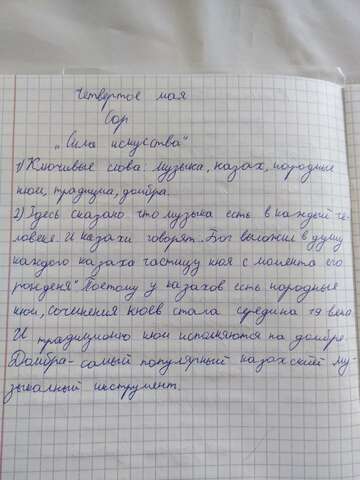 Четвертое мая
Сор
„Сила искусства"
1) Ключивые слова: музыка, казах, народные
кюи, традиция, домбра.
2) Здесь сказано что музыка есть в каждый че-
ловеке. И казахи говорят „Бог выложил в душу
каждого казаха частицу кюя с момента его
рожденя". Поетому у казахов есть народные
кюи, сочинения кюев стала средина 19 века
И традиционо кюи исполняются на домбре.
Домбра - самый популярный казахский му-
зыкалный инструмент.